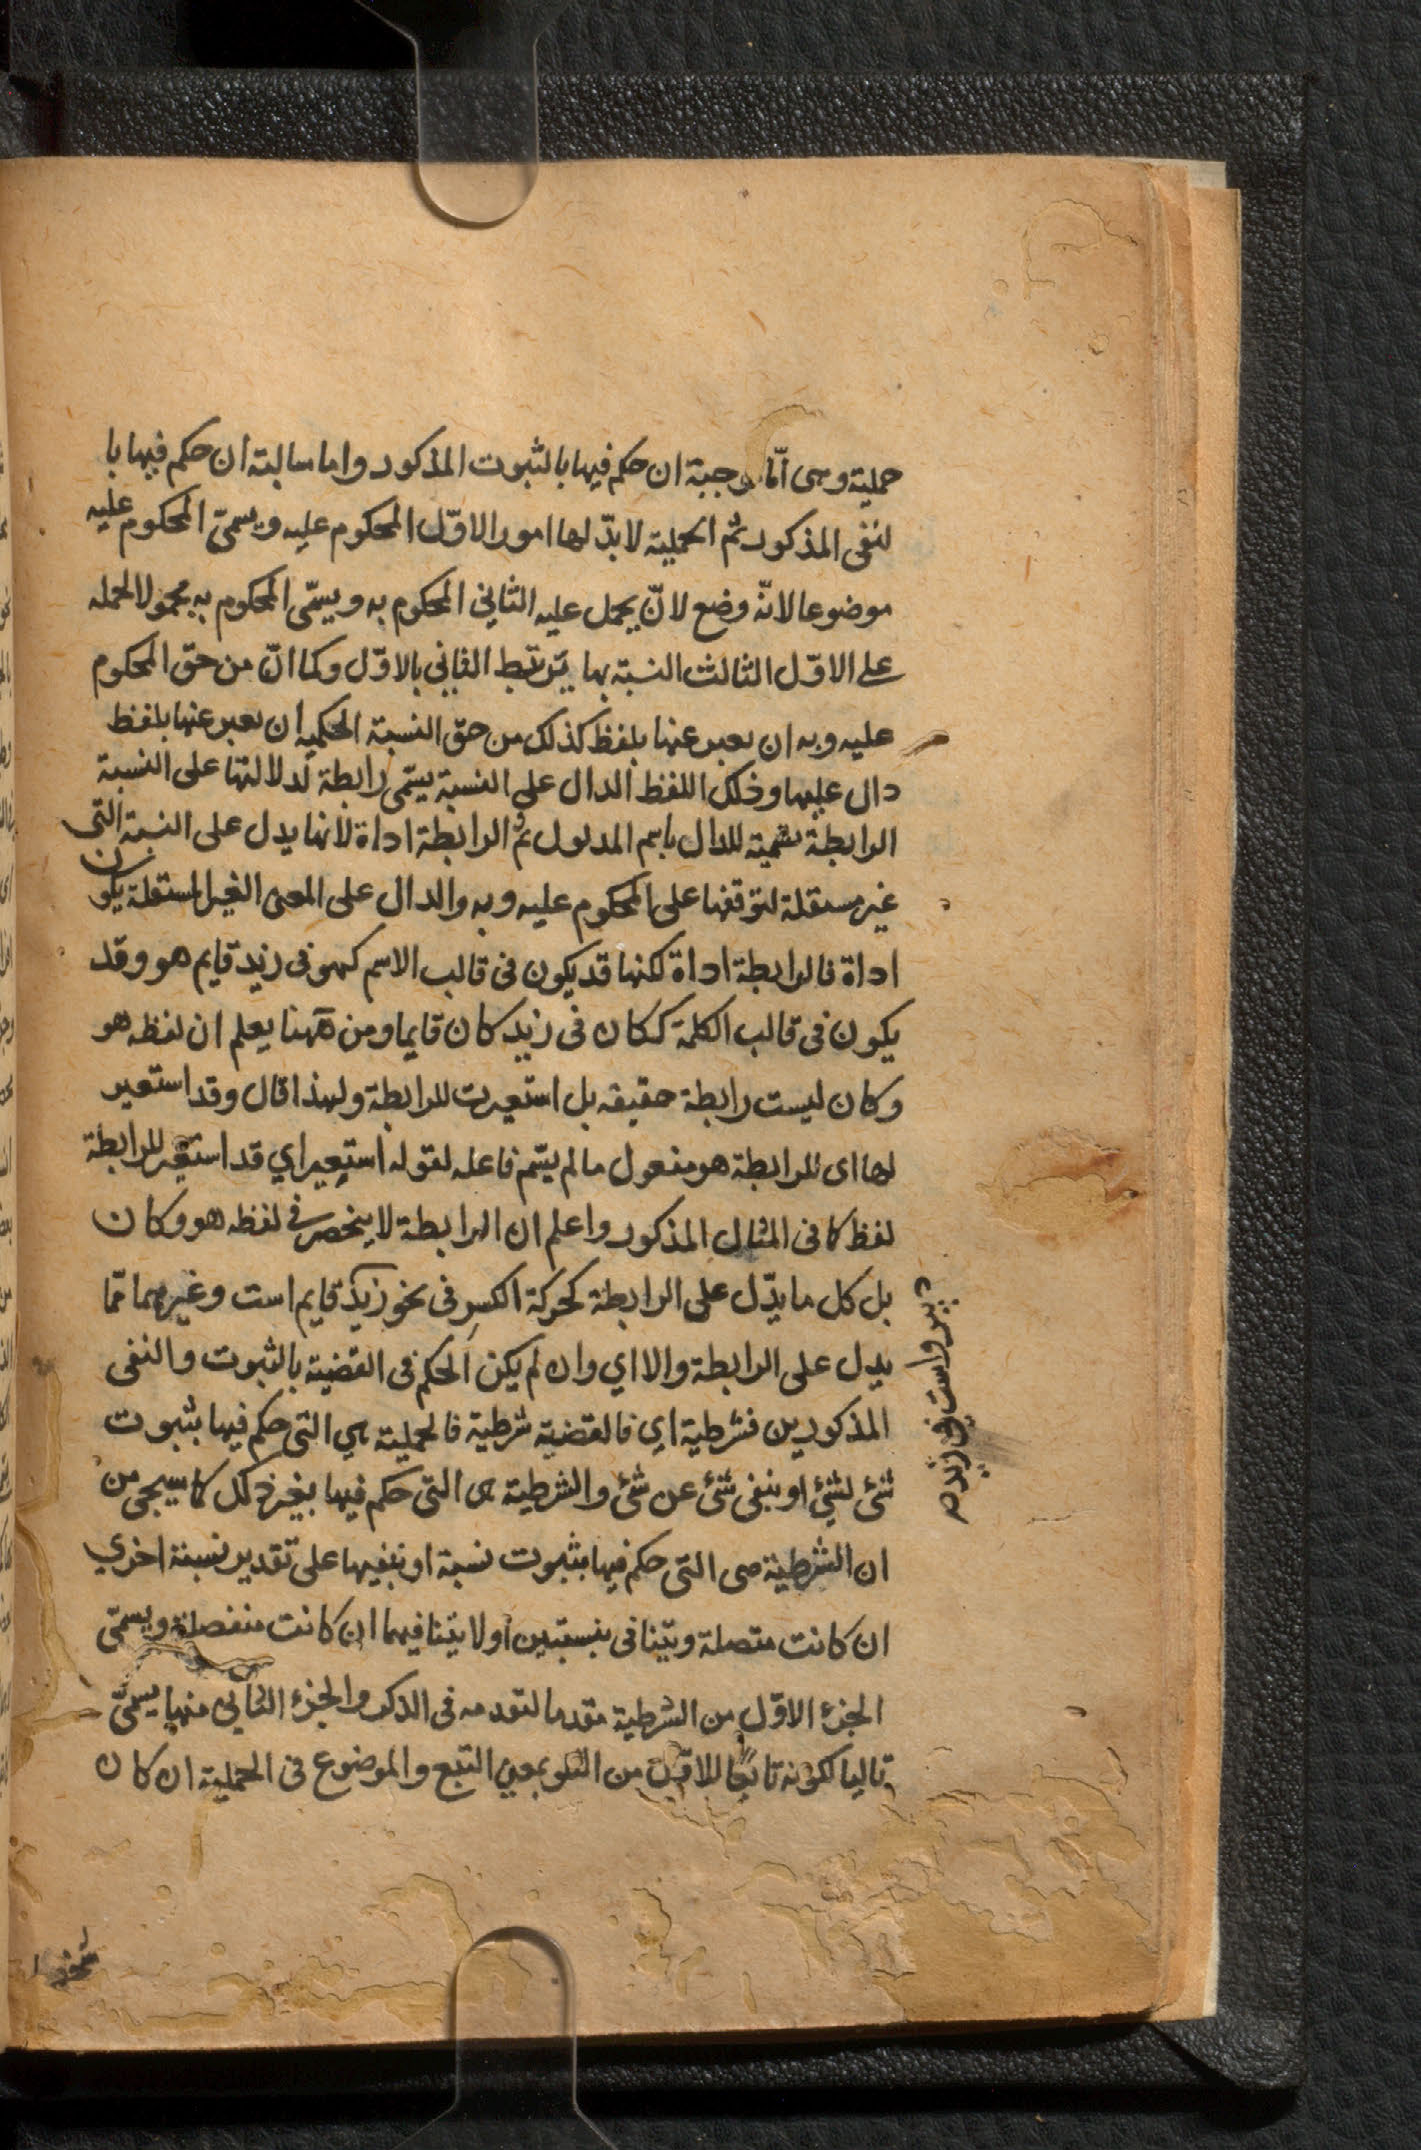 حملية وهى امّا موجبة ان حكم فيها بالثبوت المذكور واما سالبة ان حكم فيها با
لنفى المذكور ثم الحملية لا بدّ لها امور الاوّل المحكوم عليه ويسمىّ المحكوم عليه
موضوعا لانّه وضع لانّ يحمل عليه الثاني المحكوم به ويسمّى المحكوم به محمولا لحمله
على الاوّل الثالث النسبة بها يرتبط الثاني بالاوّل وكما انّ من حق المحكوم
عليه وبه ان يعبر عنها بلفظ كذلك من حق النسبة الحكمية ان يعبر عنها بلفظ
دال عليها وذلك اللفظ الدال على النسبة يسمّى رابطة لدلالتها على النسبة
الرابطة تسمية للدال باسم المدلول ثم الرابطة اداة لانها يدل على النسبة التى
غير مستقلة لتوقفها على المحكوم عليه وبه والدال على المعنى الغير المستقلة يكون
اداة فالرابطة اداة لكنها قد يكون فى قالب الاسم كهو فى زيد قايم هو وقد
يكون فى قالب الكلمة ككان فى زيد كان قايما ومن ههنا يعلم ان لفظه هو
وكان ليست رابطة حقيقه بل استعيرت للرابطة ولهذا قال وقد استعير
لها اى للرابطة هو مفعول ما لم يسّم فاعله لقوله استعير اي قد استعير للرابطة
لفظ كا فى المثال المذكور واعلم ان الرابطة لا ينحصر في لفظه هو وكان
بل كل ما يدّل على الرابطة كحركة الكسر فى نحو زيد قايم است وغيرهما ممّا
يدل على الرابطة والا اي وان لم يكن الحكم فى القضية بالثبوت والنفى
المذكورين فشرطية اي فالقضية شرطية فالحملية هي التى حكم فيها بثبوت
شئ لشئ او بنفى شئ عن شئ والشرطية هى التى حكم فيها بغير ذلك كما سيجى من
ان الشرطية هى التى حكم فيها بثبوت نسبة او بنفيها على تقدير نسبة اخري
ان كانت متصلة ويتنا فى بنسبتين او لا يتنا فيهما ان كانت منفصلة ويسمّى
الجزء الاوّل من الشرطية مقدما لتقدمه فى الذكر والجزء الثاني منها يسمىّ
تاليا لكونه تابعا للاوّل من التلو بمعنى التبع والموضوع فى الحملية ان كان